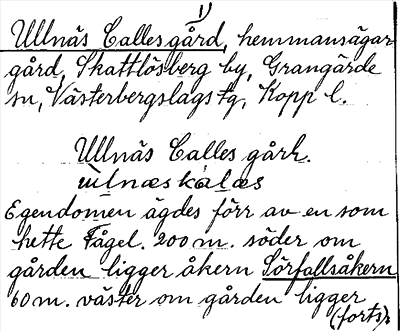 1)
Ullnäs Calles gård, hemmansägar-
gård, Skattlösberg by, Grangärde
sn, Västerbergslags tg, Kopp l.
Ullnäs Calles gårh.
ùlnæskàlæs
Egendomen ägdes förr av en som
hette Fågel. 200 m. söder om
gården ligger åkern Sörfallsåkern
60 m. väster om gården ligger
(forts).